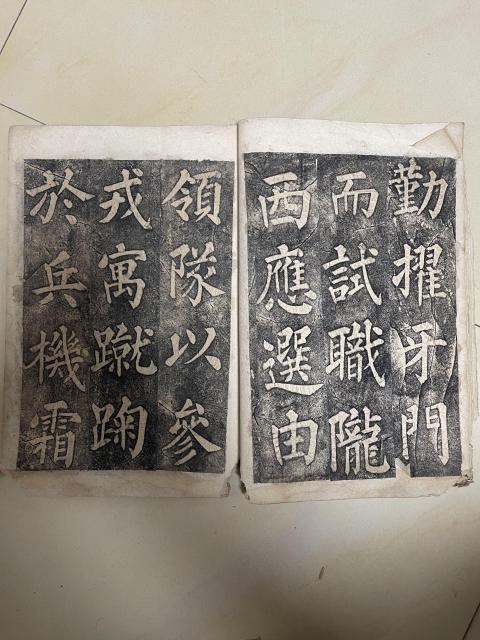 勤擢牙門
而試職隴
西應選由
領隊以參
戎寓蹴踘
於兵機霜